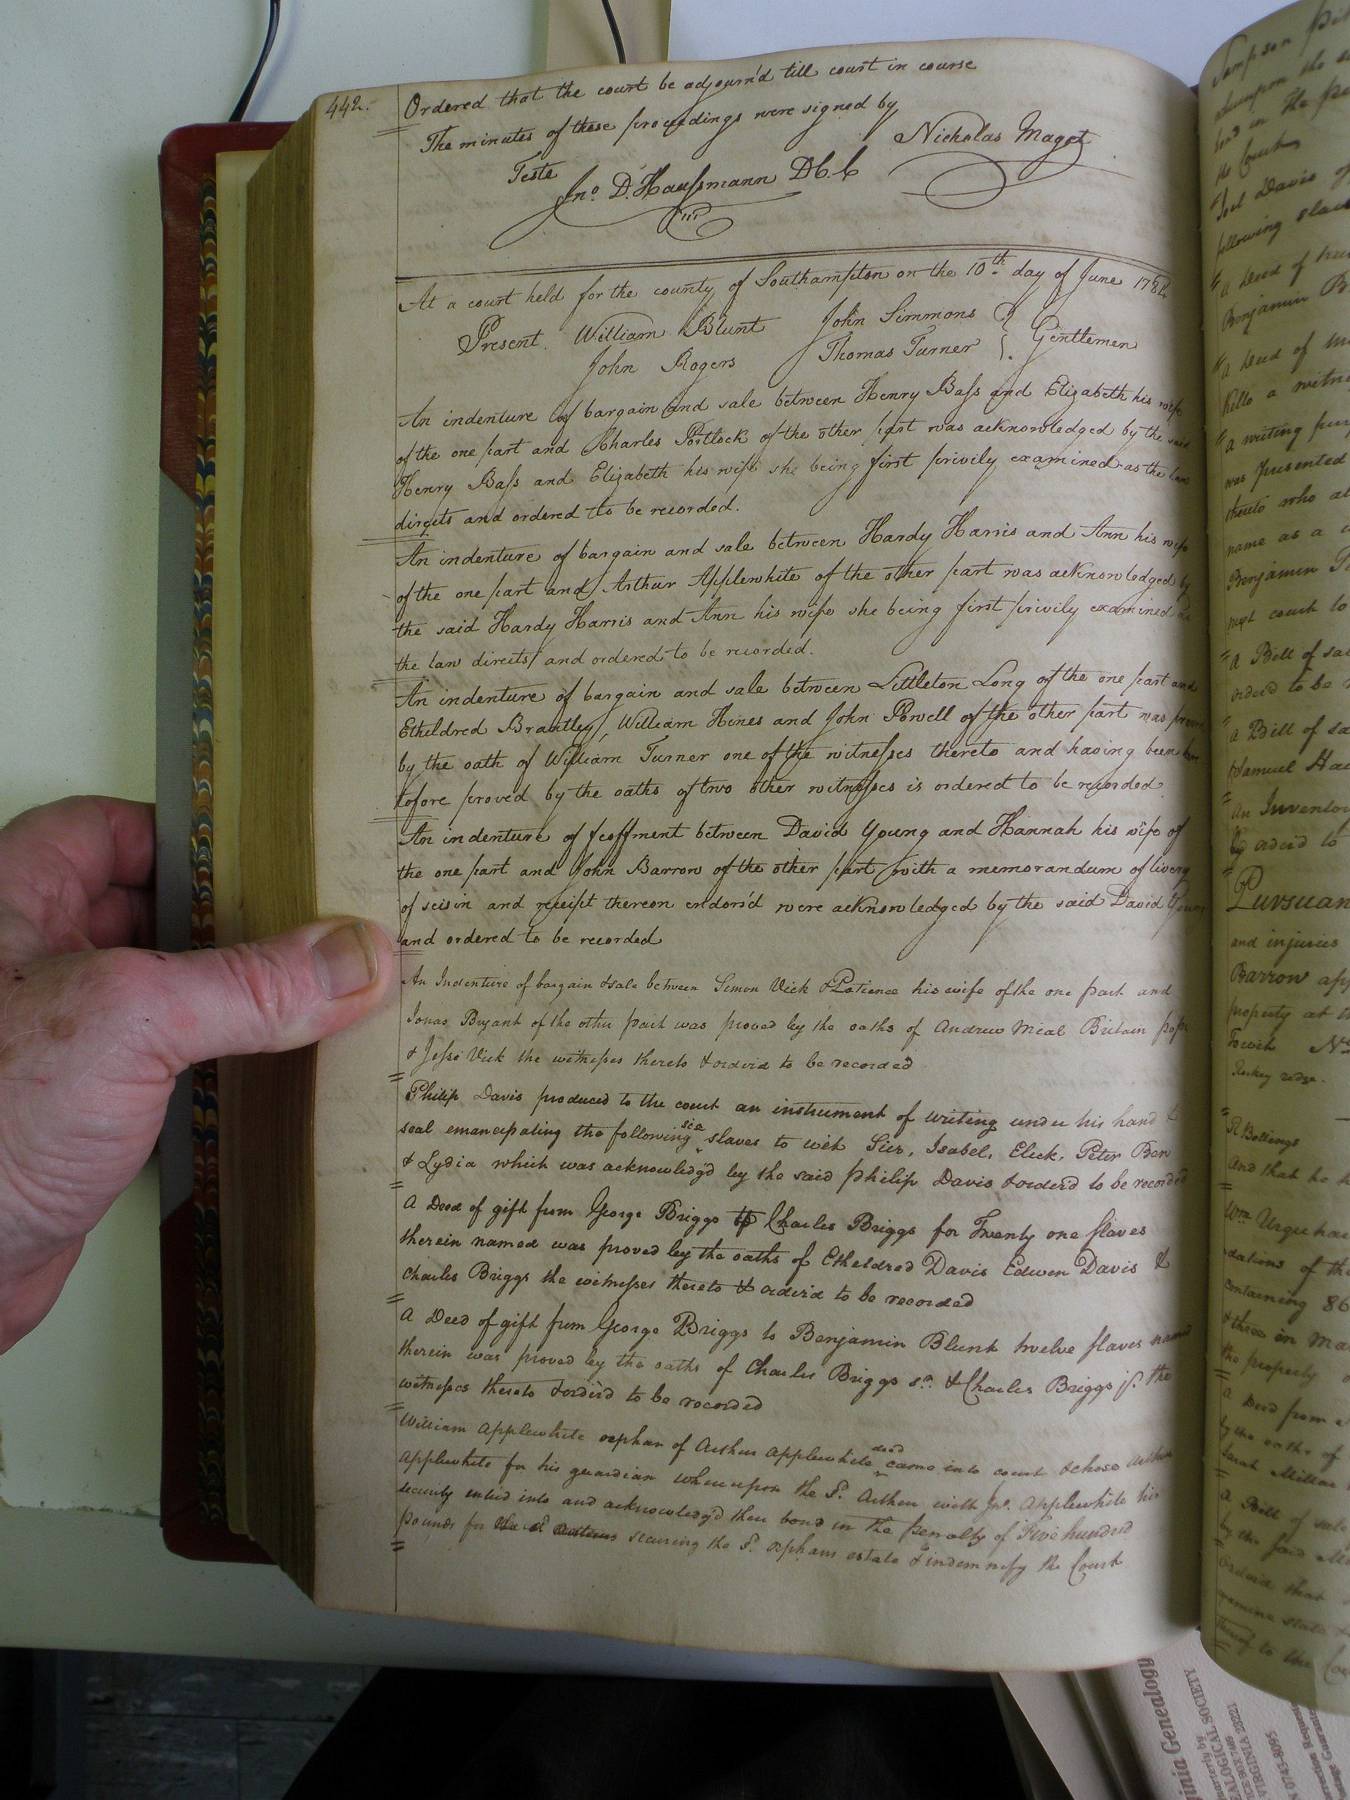 442.
Ordered that the court be adjourn'd till court in course
The minutes of these proceedings were signed by
Nicholas Maget
Teste
Jno. D. Haussmann D.C.C
At a court held for the county of Southampton on the 10th day of June 178
Present William Blunt John Simmons } Gentlemen
John Rogers Thomas Turner
An indenture of bargain and sale between Henry Bass and Elizabeth his wife
of the one part and Charles Portlock of the other part was acknowledged by the said
Henry Bass and Elizabeth his wife she being first privily examined as the law
directs and ordered to be recorded.
An indenture of bargain and sale between Hardy Harris and Ann his wife
of the one part and Arthur Applewhite of the other part was acknowledged by
the said Hardy Harris and Ann his wife she being first privily examined as
the law directs and ordered to be recorded.
An indenture of bargain and sale between Littleton Long of the one part and
Etheldred Brantley, William Hines and John Powell of the other part was proved
by the oath of William Turner one of the witnesses thereto and having been here
tofore proved by the oaths of two other witnesses is ordered to be recorded.
An indenture of feoffment between David Young and Hannah his wife of
the one part and John Barrow of the other part with a memorandum of livery
of seisin and receipt thereon endors'd were acknowledged by the said David Young
and ordered to be recorded
An Indenture of bargain & sale between Simon Vick & Patience his wife of the one part and
Jonas Bryant of the other part was proved by the oaths of Andrew Meal Britain
& Jesse Vick the witnesses thereto & orderd to be recorded
Philip Davis produced to the court an instrument of writing under his hand &
seal emancipating the following six slaves to wit Sier, Isabel, Elick, Peter Ben
& Lydia which was acknowledg'd by the said Philip Davis & orderd to be recorded
A Deed of gift from George Briggs to Charles Briggs for Twenty one slaves
therein named was proved by the oaths of Etheldred Davis Edwin Davis &
Charles Briggs the witnesses thereto & orderd to be recorded
A Deed of gift from George Briggs to Benjamin Blunt twelve slaves named
therein was proved by the oaths of Charles Briggs sr. & Charles Briggs jr. the
witnesses thereto & orderd to be recorded
William Applewhite orphan of Arthur Applewhite decd came into court & chose Arthur
Applewhite for his guardian whereupon the sd. Arthur with Jno. Applewhite his
security enterd into and acknowledg'd their bond in the penalty of Five hundred
pounds for securing the sd. orphans estate & indemnify the Court
Joel Davis
following slav
Benjamin B
a Deed of
a witne
a writing pur
was presented
thereto who
name as a
Benjamin
next court to
a Bill of sa
orderd to be
a Bill of sa
Samuel
an Inventory
orderd to
Pursuan
and injuries
Barrow app
property at
Towit No
Bollings
and that he
Wm Urquhar
dations of th
containing 86
& three in
the property
a Deed from
by the oaths of
Sarah Millar
a Bill of sale
by the said
Orderd that
examine state
thereof to the Cou
Virginia Genealogy
VIRGINIA 22221